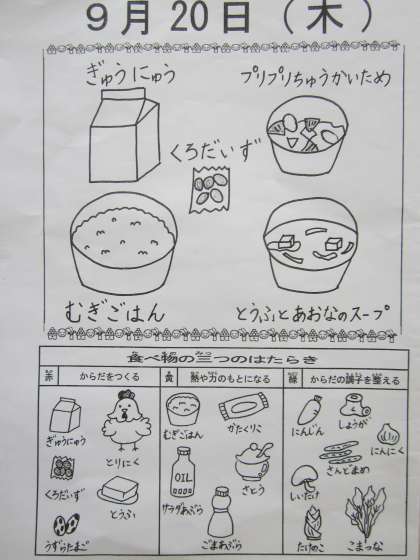 9月20日(木)
ぎゅうにゅう
プリプリちゅうかいため
くろだいず
むぎごはん
とうふとあおなのスープ
食べ物の三つのはたらき
赤 からだをつくる
黄 熱や力のもとになる
緑 からだの調子を整える
ぎゅうにゅう
とりにく
くろだいず
とうふ
うずらたまご
むぎごはん
かたくりこ
OIL
サラダあぶら
さとう
ごまあぶら
にんじん
しょうが
にんにく
さんどまめ
しいたけ
たけのこ
こまつな